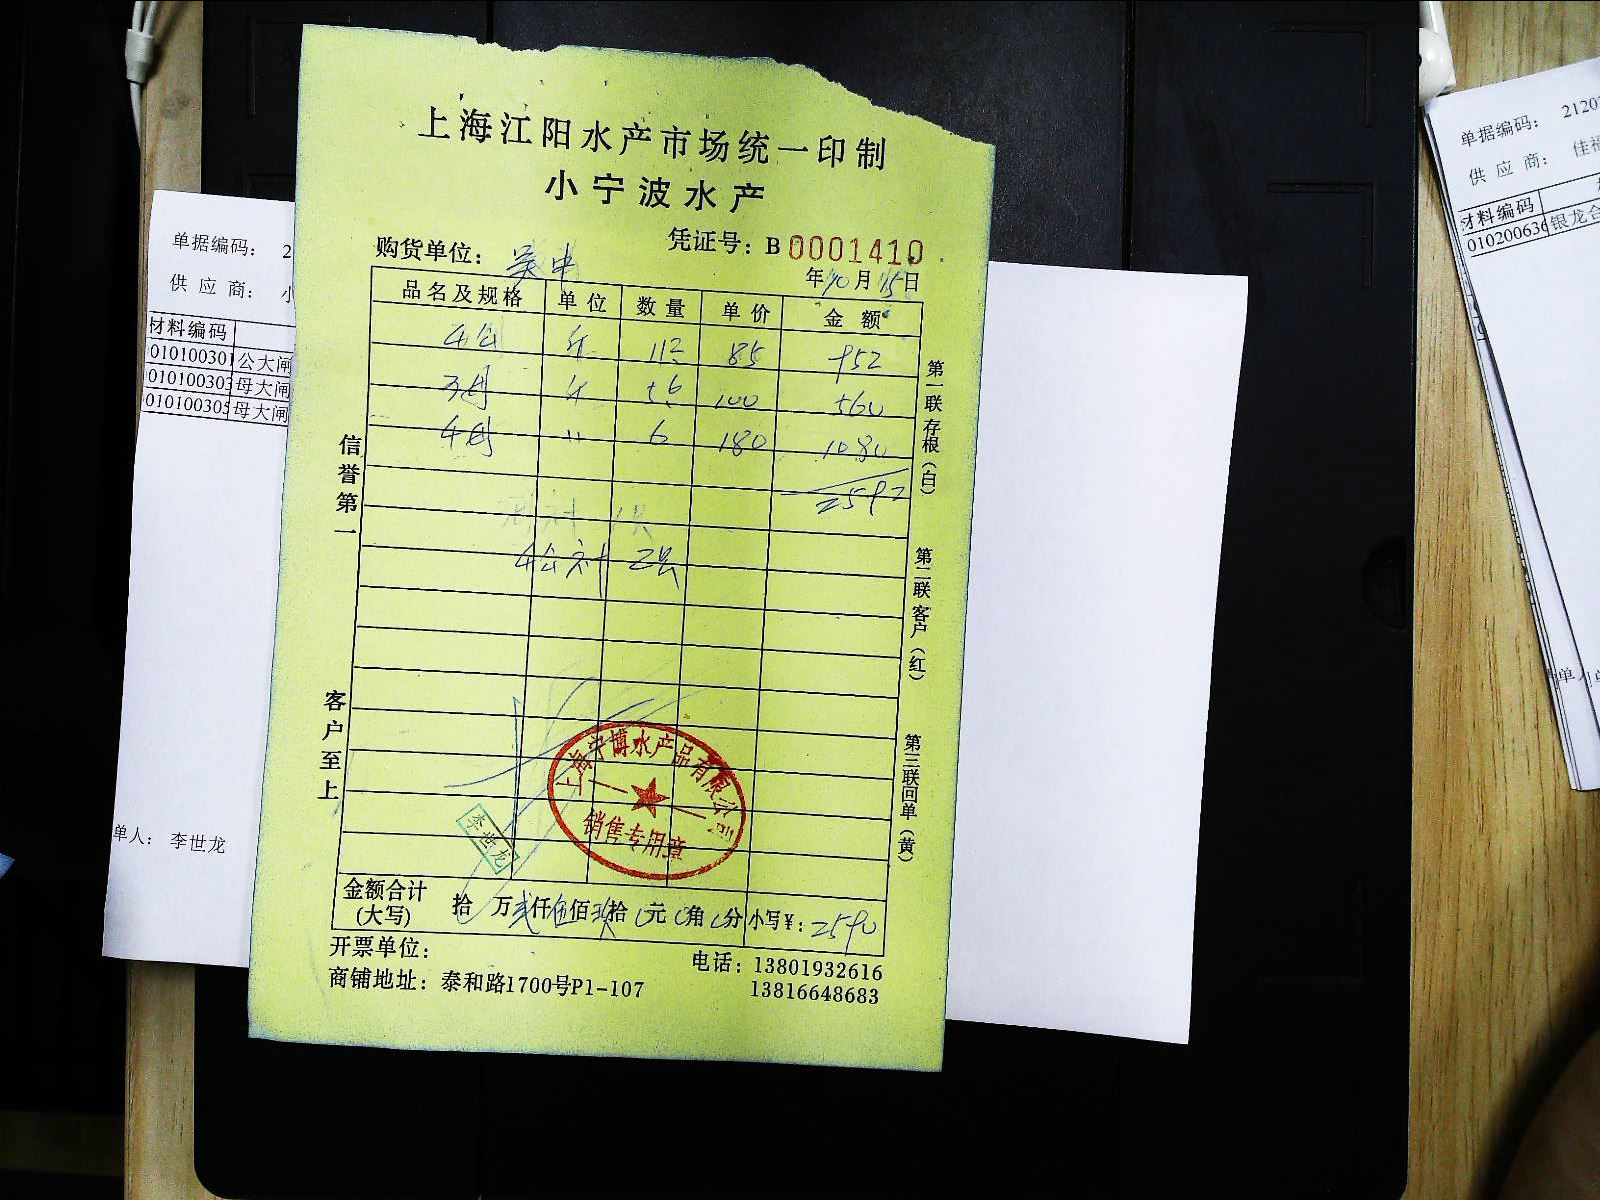 上海江阳水产市场统一印制
小宁波水产
凭证号：B 0001410
购货单位：吴中
年10月15日
品名及规格 单位 数量 单价 金额
4公 斤 11.2 85 952
3母 斤 5.6 100 560
4母 〃 6 180 1080
2592
4公 补 2只
信誉第一
客户至上
第一联存根（白）
第二联客户（红）
第三联回单（黄）
上海宁博水产品有限公司
销售专用章
李世龙
金额合计（大写） 拾 万贰仟伍佰玖拾0元0角0分 小写￥：2590
开票单位：
电话：13801932616
13816648683
商铺地址：泰和路1700号P1-107
单据编码： 2
供 应 商： 小
材料编码
010100301 公大闸
010100303 母大闸
010100305 母大闸
单人： 李世龙
单据编码： 2120
供 应 商： 佳福
材料编码
010200636 银龙合